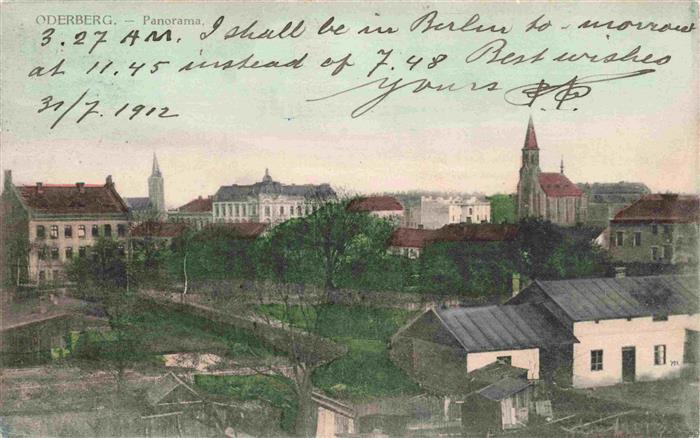 ODERBERG. – Panorama.
3.27 AM. I shall be in Berlin to-morrow
at 11.45 instead of 7.48 Best wishes
Yours
31/7. 1912